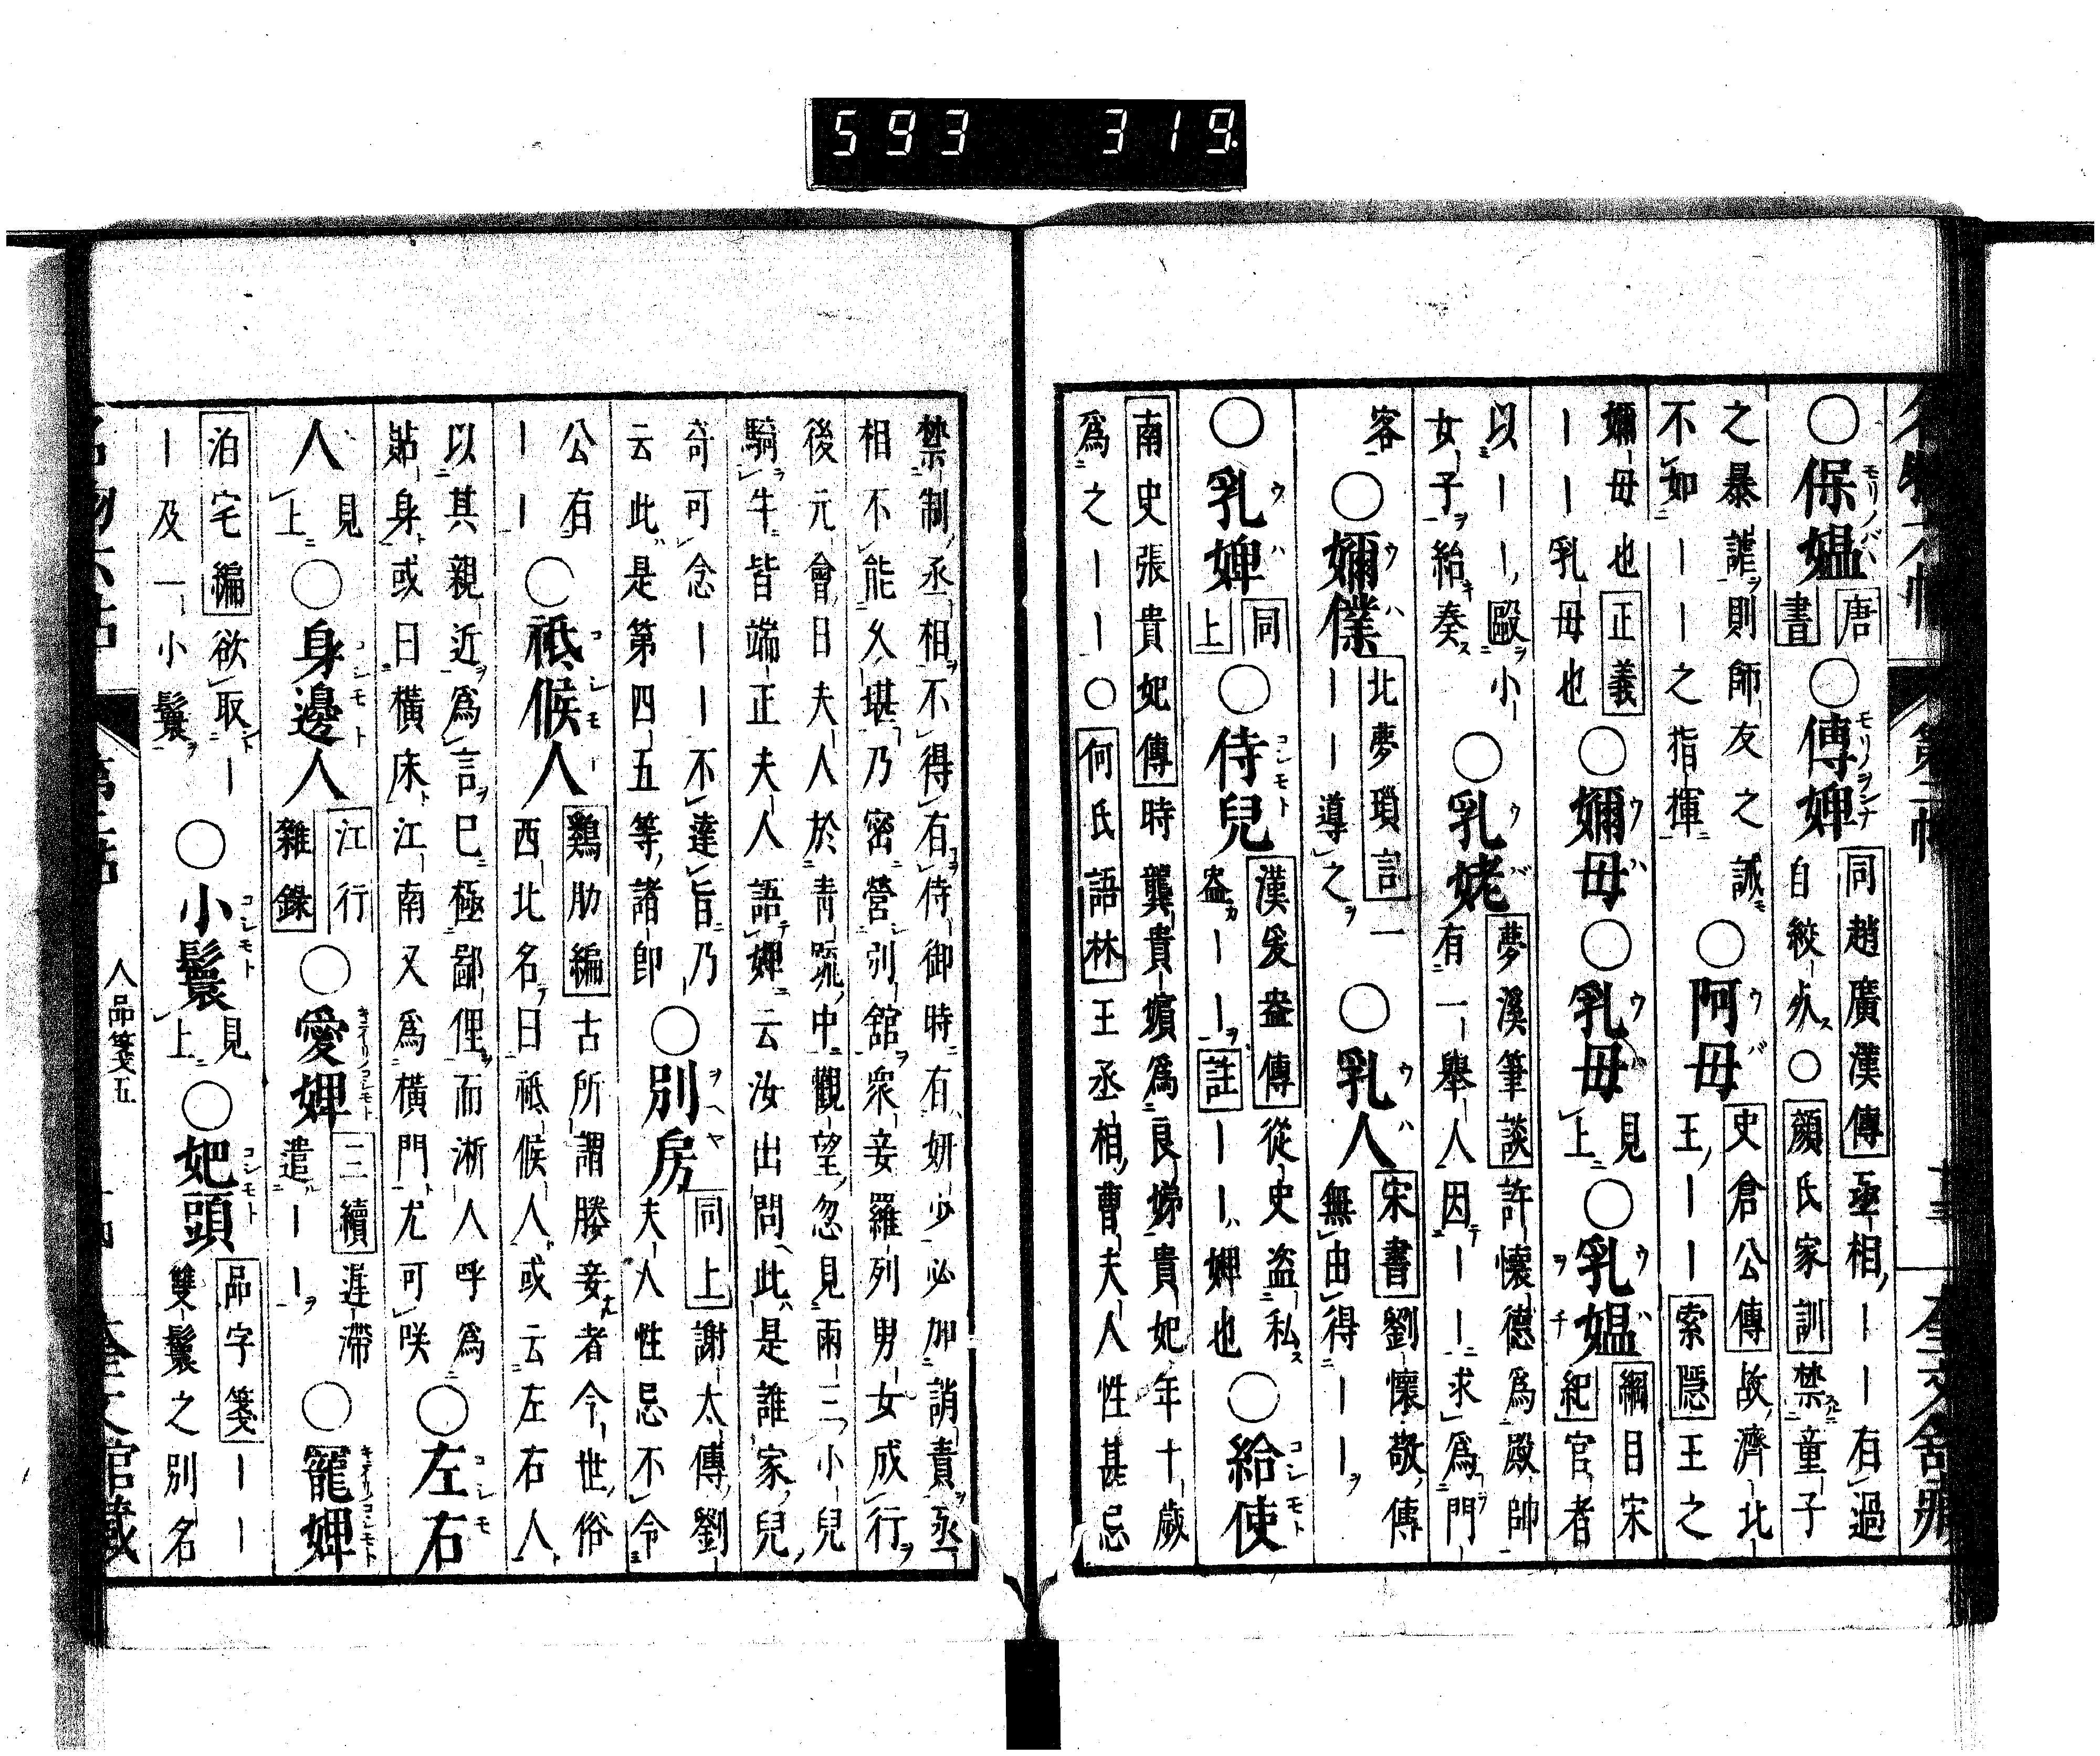 593 319.
○保媼唐書○傅婢同趙廣漢傳丞相丨丨有過自絞死○顏氏家訓禁童子
之暴謔則師友之誡不如丨丨之指揮○阿母史倉公傳故濟北王丨丨索隱王之
嬭母也正義丨丨乳母也○嬭母○乳母見上○乳媼綱目宋紀官者
以丨丨毆小女子紿奏○乳姥夢溪筆談許懷德爲殿帥有一舉人因丨丨求爲門
客○嬭僕北夢瑣言一丨丨導之○乳人宋書劉懷敬傳無由得丨丨
○乳婢同上○侍兒漢爰盎傳從史盜私盎丨丨註丨丨婢也○給使
南史張貴妃傳時龔貴嬪爲良娣貴妃年十歲爲之丨丨○何氏語林王丞相曹夫人性甚忌
禁制丞相不得有侍御時有妍少必加誚責丞相不能久堪乃密營別館衆妾羅列男女成行
後元會日夫人於青疏中觀望忽見兩三小兒騎牛皆端正夫人語婢云汝出問此是誰家兒
奇可念丨丨不達旨乃云此是第四五等諸郎○別房同上謝太傅劉夫人性忌不令
公有丨丨○祗候人鷄肋編古所謂媵妾者今世俗西北名曰祗候人或云左右人
以其親近爲言已極鄙俚而淅人呼爲貼身或曰橫床江南又爲橫門尤可咲○左右
人見上○身邊人江行雜錄○愛婢二續遅滯遣丨丨○寵婢
泊宅編欲取丨丨及一小鬟○小鬟見上○妑頭品字箋丨丨雙鬟之別名
人品箋五